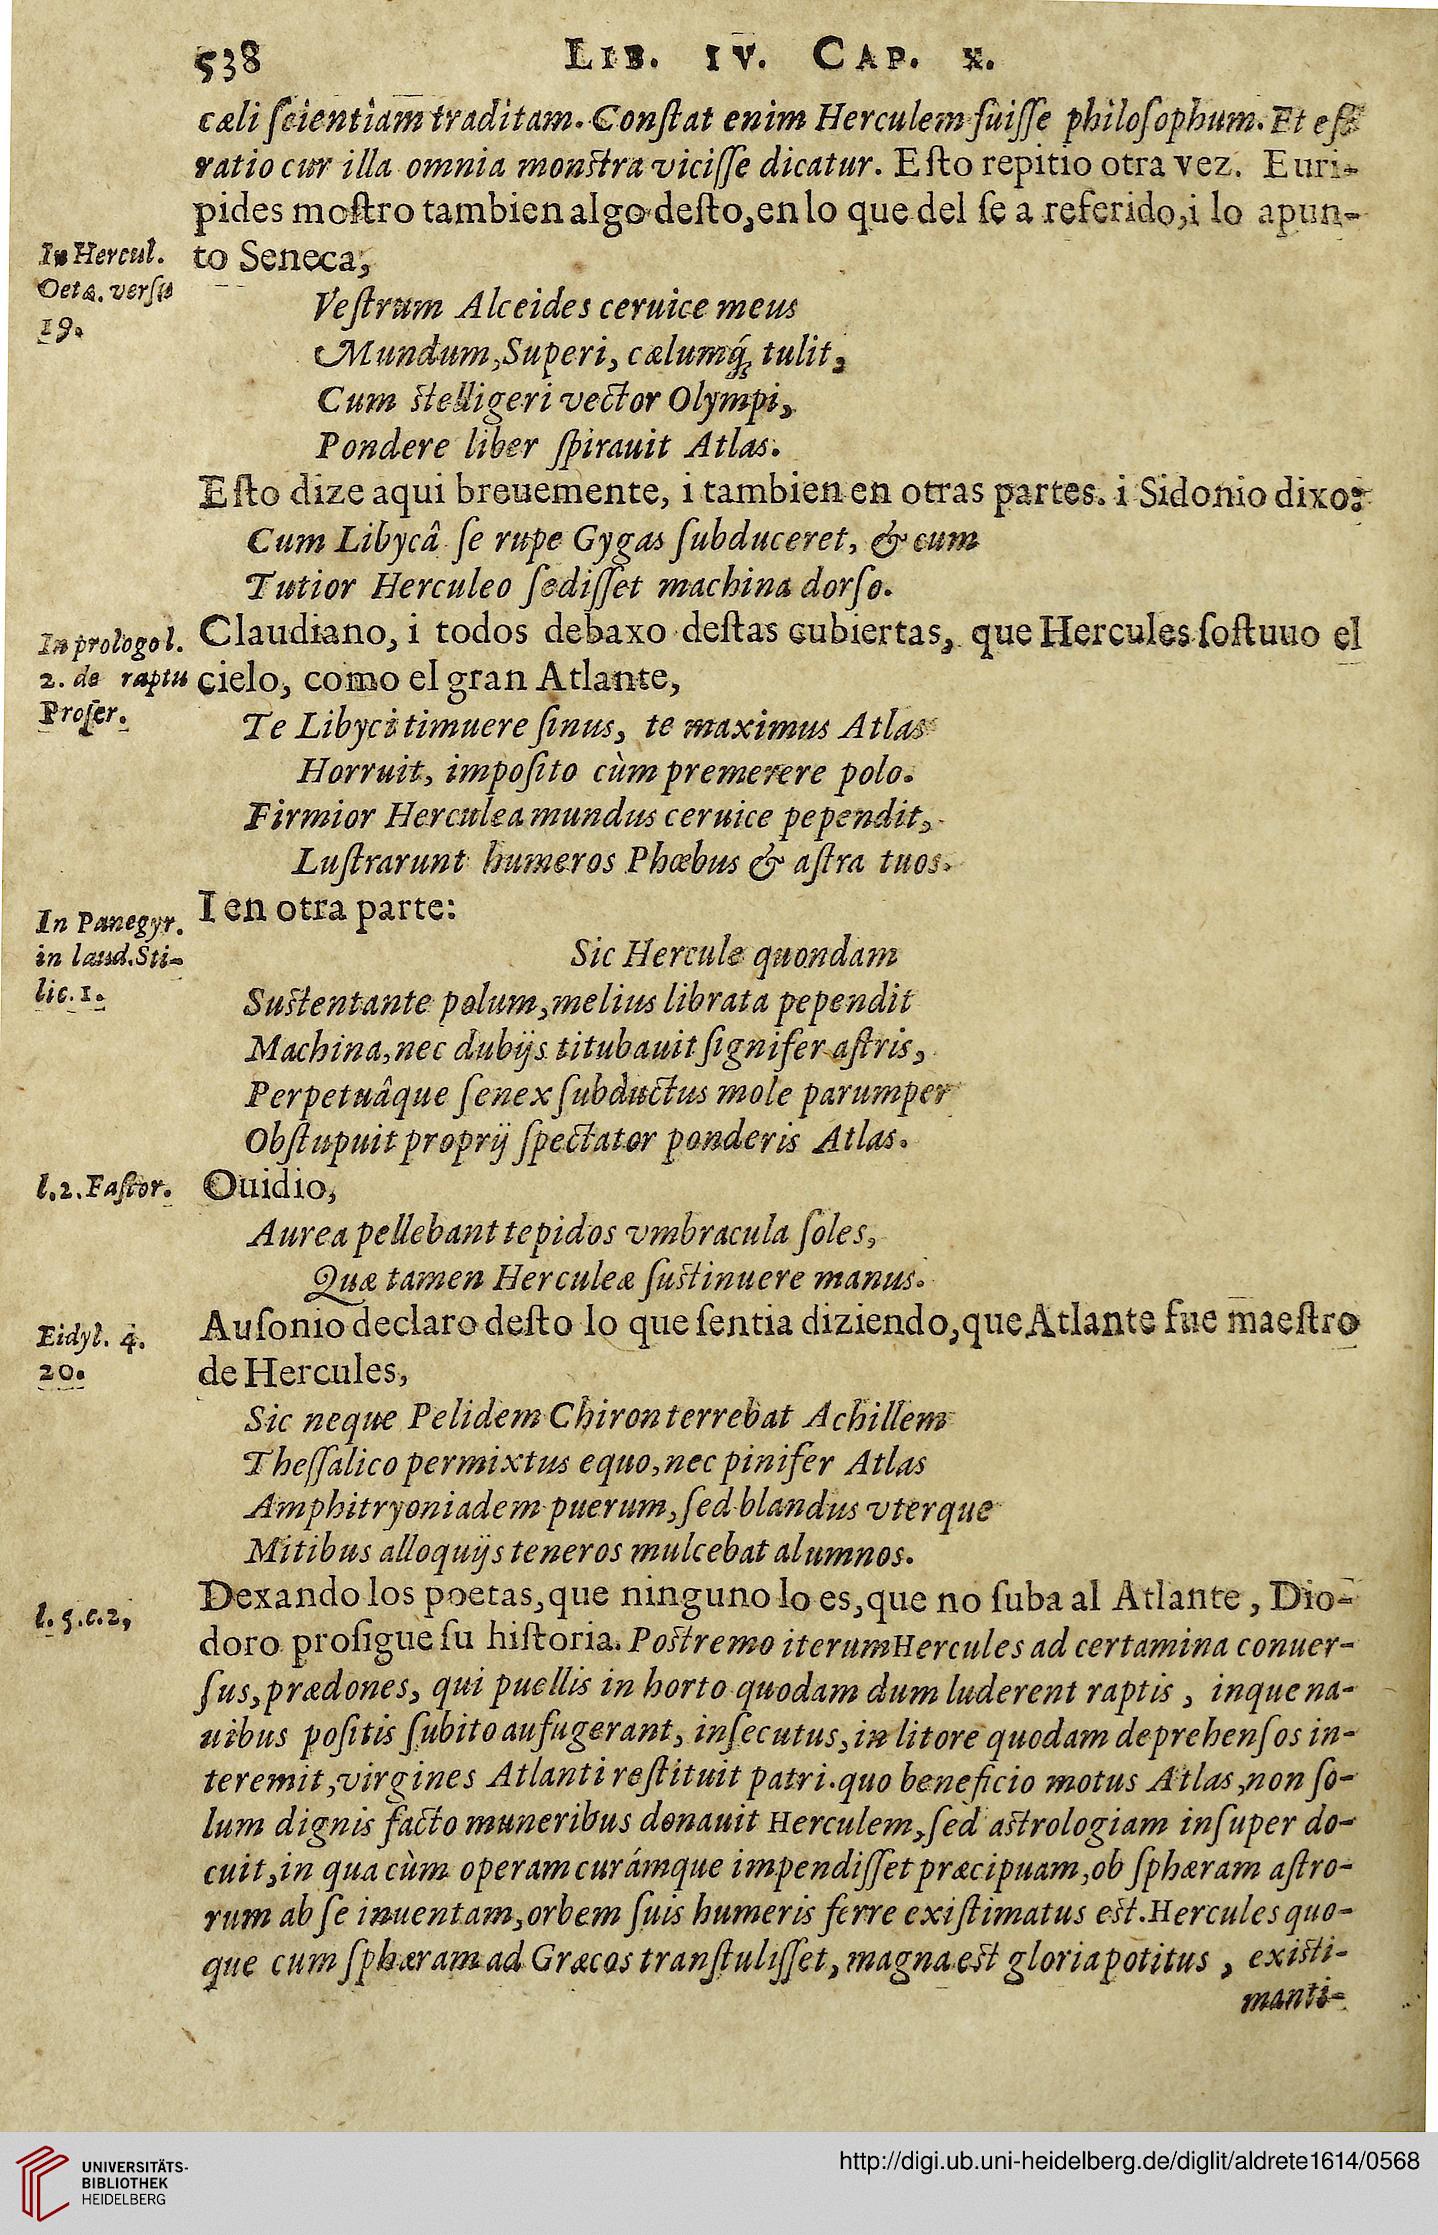 538 LIB. IV. CAP. X.
cæli ſcientiam traditam. Conſtat enim Herculem fuiſſe philoſophum. Et eſt
ratio cur illa omnia monſtra viciſſe dicatur. Eſto repitio otra vez. Euri-
pides moſtro tambien algo deſto, en lo que del ſe a referido, i lo apun-
to Seneca,
In Hercul.
Oetæ. verſu
19.
Veſtrum Alceides ceruice meus
Mundum, Superi, cælumq́; tulit,
Cum ſtelligeri vector Olympi,
Pondere liber ſpirauit Atlas.
Eſto dize aqui breuemente, i tambien en otras partes. i Sidonio dixo:
Cum Libycâ ſe rupe Gygas ſubduceret, & cum
Tutior Herculeo ſediſſet machina dorſo.
Claudiano, i todos debaxo deſtas cubiertas, que Hercules ſoſtuuo el
cielo, como el gran Atlante,
In prologo l.
2. de raptu
Proſer.
Te Libyci timuere ſinus, te maximus Atlas
Horruit, impoſito cùm premerere polo.
Firmior Herculea mundus ceruice pependit,
Luſtrarunt humeros Phœbus & aſtra tuos.
I en otra parte:
In Panegyr.
in laud. Sti-
lic. 1.
Sic Hercule quondam
Suſtentante polum, melius librata pependit
Machina, nec dubijs titubauit ſignifer aſtris,
Perpetuâque ſenex ſubductus mole parumper
Obſtupuit proprij ſpectator ponderis Atlas.
l. 2. Faſtor.
Ouidio,
Aurea pellebant tepidos vmbracula ſoles,
Quæ tamen Herculeæ ſuſtinuere manus.
Auſonio declaro deſto lo que ſentia diziendo, que Atlante fue maeſtro
de Hercules,
Eidyl. 4.
20.
Sic neque Pelidem Chiron terrebat Achillem
Theſſalico permixtus equo, nec pinifer Atlas
Amphitryoniadem puerum, ſed blandus vterque
Mitibus alloquijs teneros mulcebat alumnos.
l. 5. c. 2,
Dexando los poetas, que ninguno lo es, que no ſuba al Atlante, Dio-
doro proſigue ſu hiſtoria. Poſtremo iterum Hercules ad certamina conuer-
ſus, prædones, qui puellis in horto quodam dum luderent raptis, inque na-
uibus poſitis ſubito aufugerant, inſecutus, in litore quodam deprehenſos in-
teremit, virgines Atlanti reſtituit patri. quo beneficio motus Atlas, non ſo-
lum dignis facto muneribus donauit Herculem, ſed aſtrologiam inſuper do-
cuit, in qua cùm operam curámque impendiſſet præcipuam, ob ſphæram aſtro-
rum ab ſe inuentam, orbem ſuis humeris ferre exiſtimatus eſt. Hercules quo-
que cum ſphæram ad Græcos tranſtuliſſet, magna eſt gloria potitus, exiſti-
manti-
UNIVERSITÄTS-
BIBLIOTHEK
HEIDELBERG
http://digi.ub.uni-heidelberg.de/diglit/aldrete1614/0568